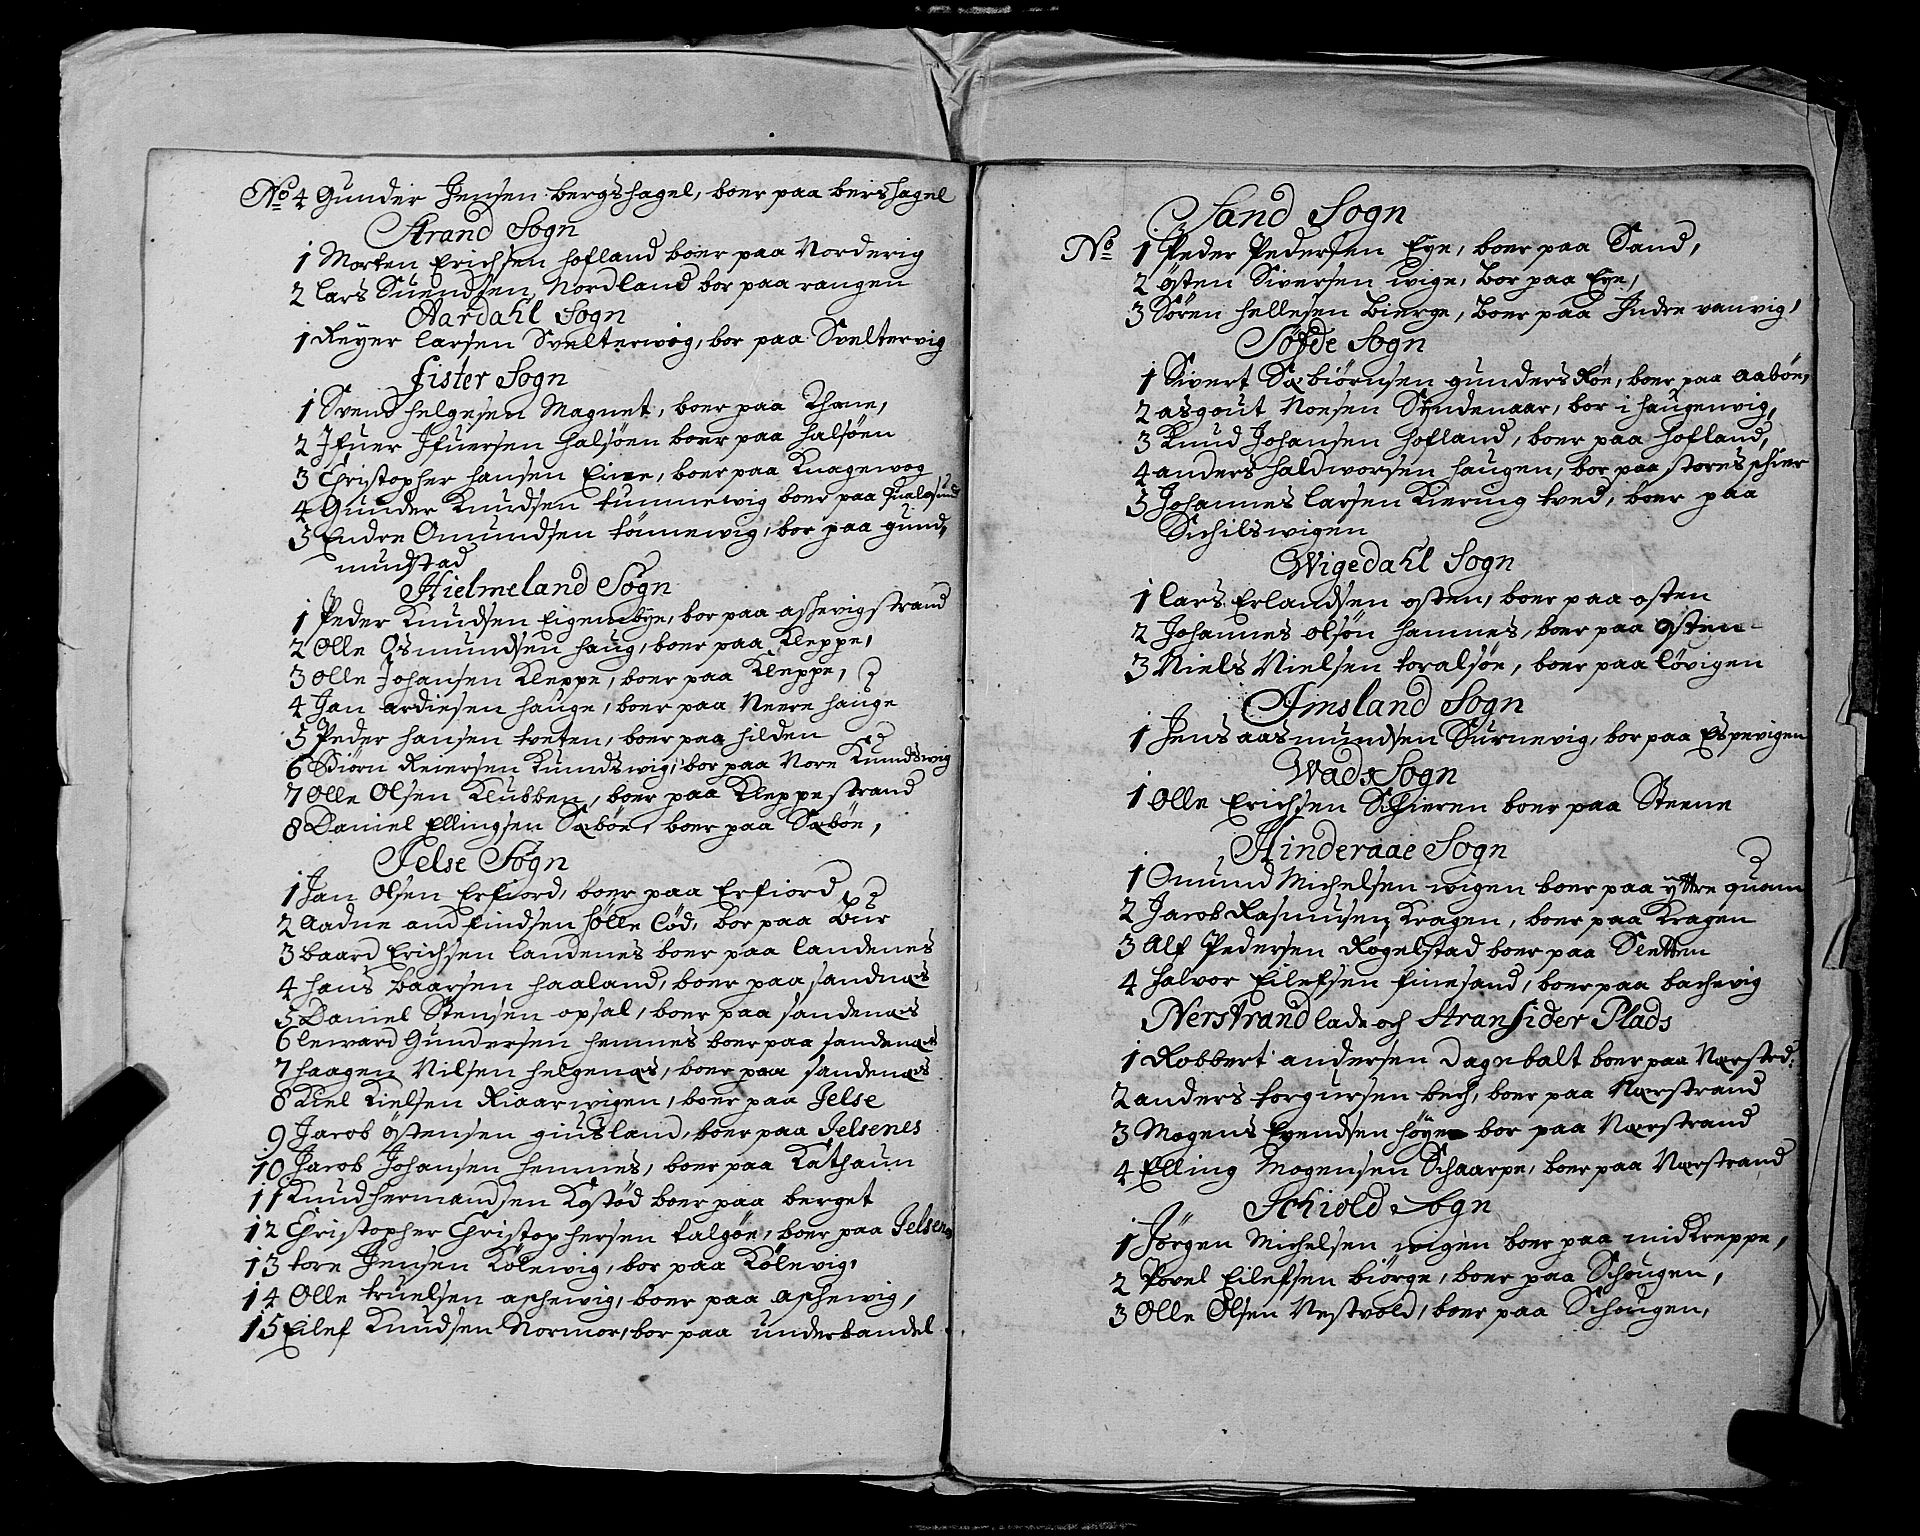 No 4 Gunder Jensen bergshagel, boer paa bershagel
Strand Sogn
1 Morten Erichsen hofland boer paa Norderig
2 Lars Suendsen Nordland bor paa rangen
Aardahl Sogn
1 Reyer Larsen Svelterwog, bor paa Sveltervig
fister Sogn
1 Svend helgesen Magnet, boer paa Thane,
2 Jfuer Jfuersen halsöen boer paa halsöen
3 Christopher hansen Eine, boer paa Knagewog
4 Gunder Knudsen tunnewig boer paa hualøsund
5 Endre Omundsen tönnewig, bor paa gund,
mundstad
Hielmeland Sogn
1 Peder Knudsen Eigenebye, bor paa aschevigstrand
2 Olle Osmundsen haug, boer paa Kleppe,
3 Olle Johansen Kleppe, boer paa Kleppe,
4 Jan ardiesen hauge, boer paa Neere hauge
5 Peder hansen tveten, boer paa hilden
6 Biörn Reiersen Kundswig, bor paa Nore Kundswig
7 Olle Olsen Klubben, boer paa Kleppestrand
8 Daniel Ellingsen Sæböe, boer paa Sæböe,
Jelse Sogn
1 Jan Olsen Erfiord, boer paa Erfiord,
2 Aadne andfindsen hölle Cöd, bor paa Bur
3 baard Erichsen landenes boer paa landenes
4 hans baarsen haaland, boer paa sandnæs
5 Daniel Stensen opsal, boer paa sandenæs
6 leward Gundersen hemnes boer paa sandenæs
7 haagen Nilsen helgenæs, boer paa sandenæs
8 Kiel Kielsen Riaarwigen, boer paa Jelse
9 Jacob östensen giusland, boer paa Jelsenes
10 Jacob Johansen hemnes, boer paa Kathaun
11 Knud hermandsen Kystöd boer paa berget
12 Christopher Christophersen talgöe, boer paa Jelsenes
13 tore Jensen Kölewig, bor paa Kölevig,
14 Olle truelsen aschewig, boer paa aschewig,
15 Eilef Knudsen Normor, bor paa underbandel
Sand Sogn
No 1 Peder Pedersen Eye, boer paa Sand,
2 östen Siversen wige, Bor paa Eye,
3 Sören hellesen Bierge, Boer paa Indre vanvig,
Söfde Sogn
1 Sivert Sæbiörnsen gundersRöe, boer paa aaböe,
2 asgout Noesen Syndenaar, bor i haugenvig,
3 Knud Johansen hofland, boer paa hofland,
4 anders haldworsen haugen, bor paa storesschier
5 Johannes larsen Kiering tved, boer paa
Sichilswigen
Wigedahl Sogn
1 Lars Erlandsen osten, boer paa osten
2 Johannes olsön hamnes, boer paa østen
3 Niels Nielsen toralsöe, boer paa lövigen
Jmsland Sogn
1 Jens aasmundsen Surnevig, bor paa Espevigen
Wads Sogn
1 Olle Erichsen Schieren boer paa Steene
Hinderaae Sogn
1 Omund Michelsen wigen boer paa yttre quam
2 Jacob Rasmusen Kragen, boer paa Kragen
3 Alf Pedersen Rögelstad boer paa Sletten
4 halvor Eilefsen finesand, boer paa bachevig
Nerstrand lade och Stransider Plads
1 Robbert andersen Dagnbalt boer paa Nærstrd:
2 anders torgursen bech, boer paa Nærstrand
3 Mogens Evendsen höye bor paa Nærstrand
4 Elling Mogensen Schaarpe, boer paa Nærstrand
Schiold Sogn
1 Jörgen Michelsen wigen boer paa midKreppe,
2 Povel Eilefsen biörge, boer paa Schougen,
3 Olle Olsen Nestvold, boer paa Schougen,